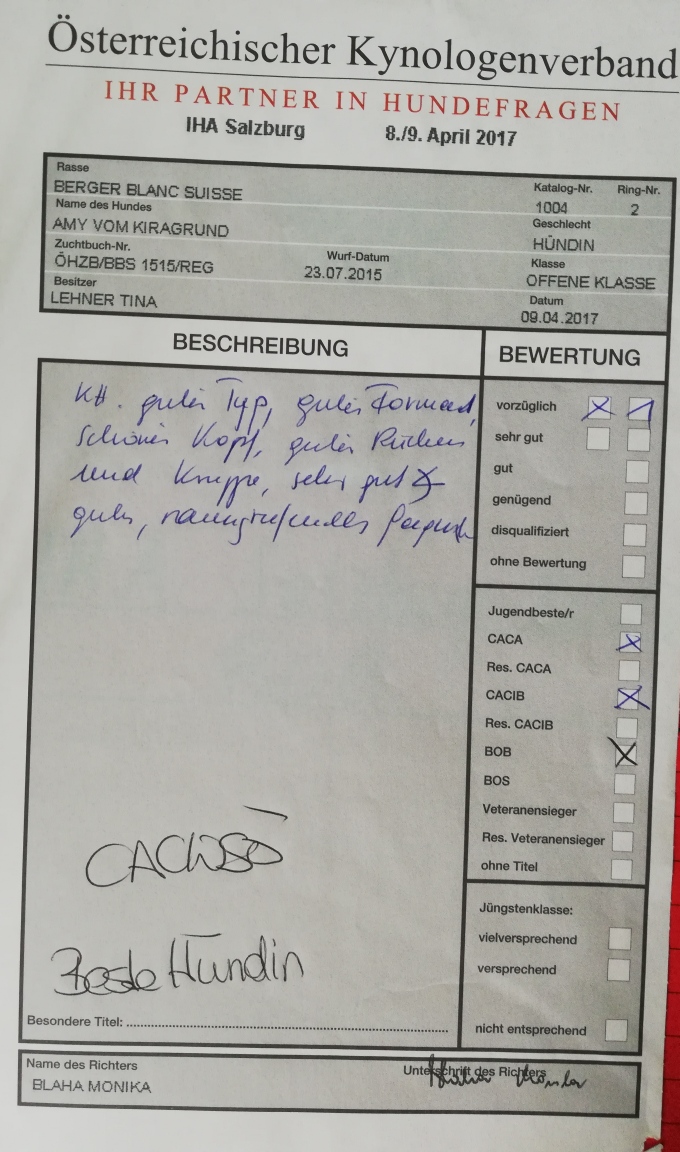 Österreichischer Kynologenverband
IHR PARTNER IN HUNDEFRAGEN
IHA Salzburg 8./9. April 2017
Rasse
BERGER BLANC SUISSE
Katalog-Nr. Ring-Nr.
1004 2
Name des Hundes
AMY VOM KIRAGRUND
Geschlecht
HÜNDIN
Zuchtbuch-Nr. Wurf-Datum
ÖHZB/BBS 1515/REG 23.07.2015
Klasse
OFFENE KLASSE
Besitzer
LEHNER TINA
Datum
09.04.2017
BESCHREIBUNG
guter Typ, guter Format,
schöner Kopf, guter Rücken
und Kruppe, sehr gut
gutes, raumgreifendes
CACWSS
Beste Hündin
Besondere Titel:
BEWERTUNG
vorzüglich X 1
sehr gut
gut
genügend
disqualifiziert
ohne Bewertung
Jugendbeste/r
CACA X
Res. CACA
CACIB X
Res. CACIB
BOB X
BOS
Veteranensieger
Res. Veteranensieger
ohne Titel
Jüngstenklasse:
vielversprechend
versprechend
nicht entsprechend
Name des Richters
BLAHA MONIKA
Unterschrift des Richters